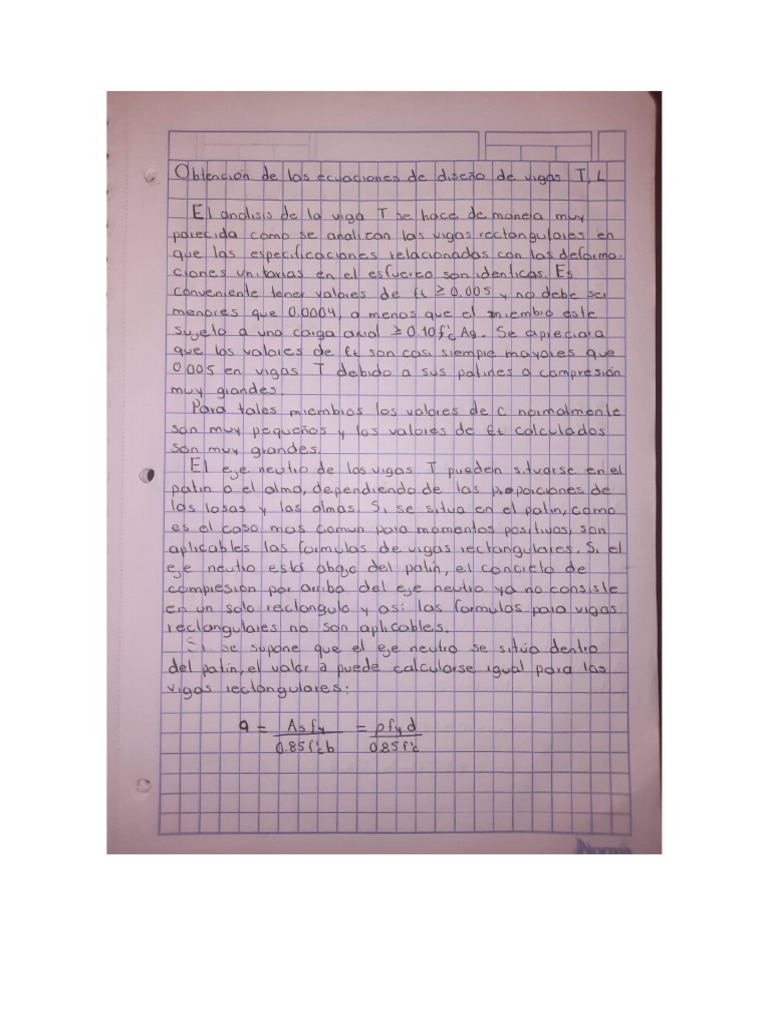 Obtención de las ecuaciones de diseño de vigas T, L
El analisis de la viga T se hace de maneia muy
parecida como se analizan las vigas rectangulares en
que las especificaciones relacionadas con las deforma-
ciones unitarias en el esfuerzo son identicas. Es
conveniente tener valores de εt ≥ 0.005 y no debe ser
menores que 0.0004, a menos que el miembro este
sujeto a una carga axial ≥ 0.10 f'c Ag. Se apreciara
que los valores de εt son casi siempre mayores que
0.005 en vigas T debido a sus patines a compresión
muy grandes.
Para tales miembros los valores de c normalmente
son muy pequeños y los valores de εt calculados
son muy grandes.
El eje neutro de las vigas T pueden situarse en el
patin o el alma, dependiendo de las proporciones de
las losas y las almas. Si se situa en el patin, como
es el caso mas comun para momentos positivos, son
aplicables las formulas de vigas rectangulares. Si el
eje neutro está abajo del patín, el concreto de
compresión por arriba del eje neutro ya no consiste
en un solo rectangulo y así las formulas para vigas
rectangulares no son aplicables.
Si se supone que el eje neutro se sitúa dentro
del patín, el valor a puede calcularse igual para las
vigas rectangulares:
a = As fy / 0.85 f'c b = ρ fy d / 0.85 f'c
Norma